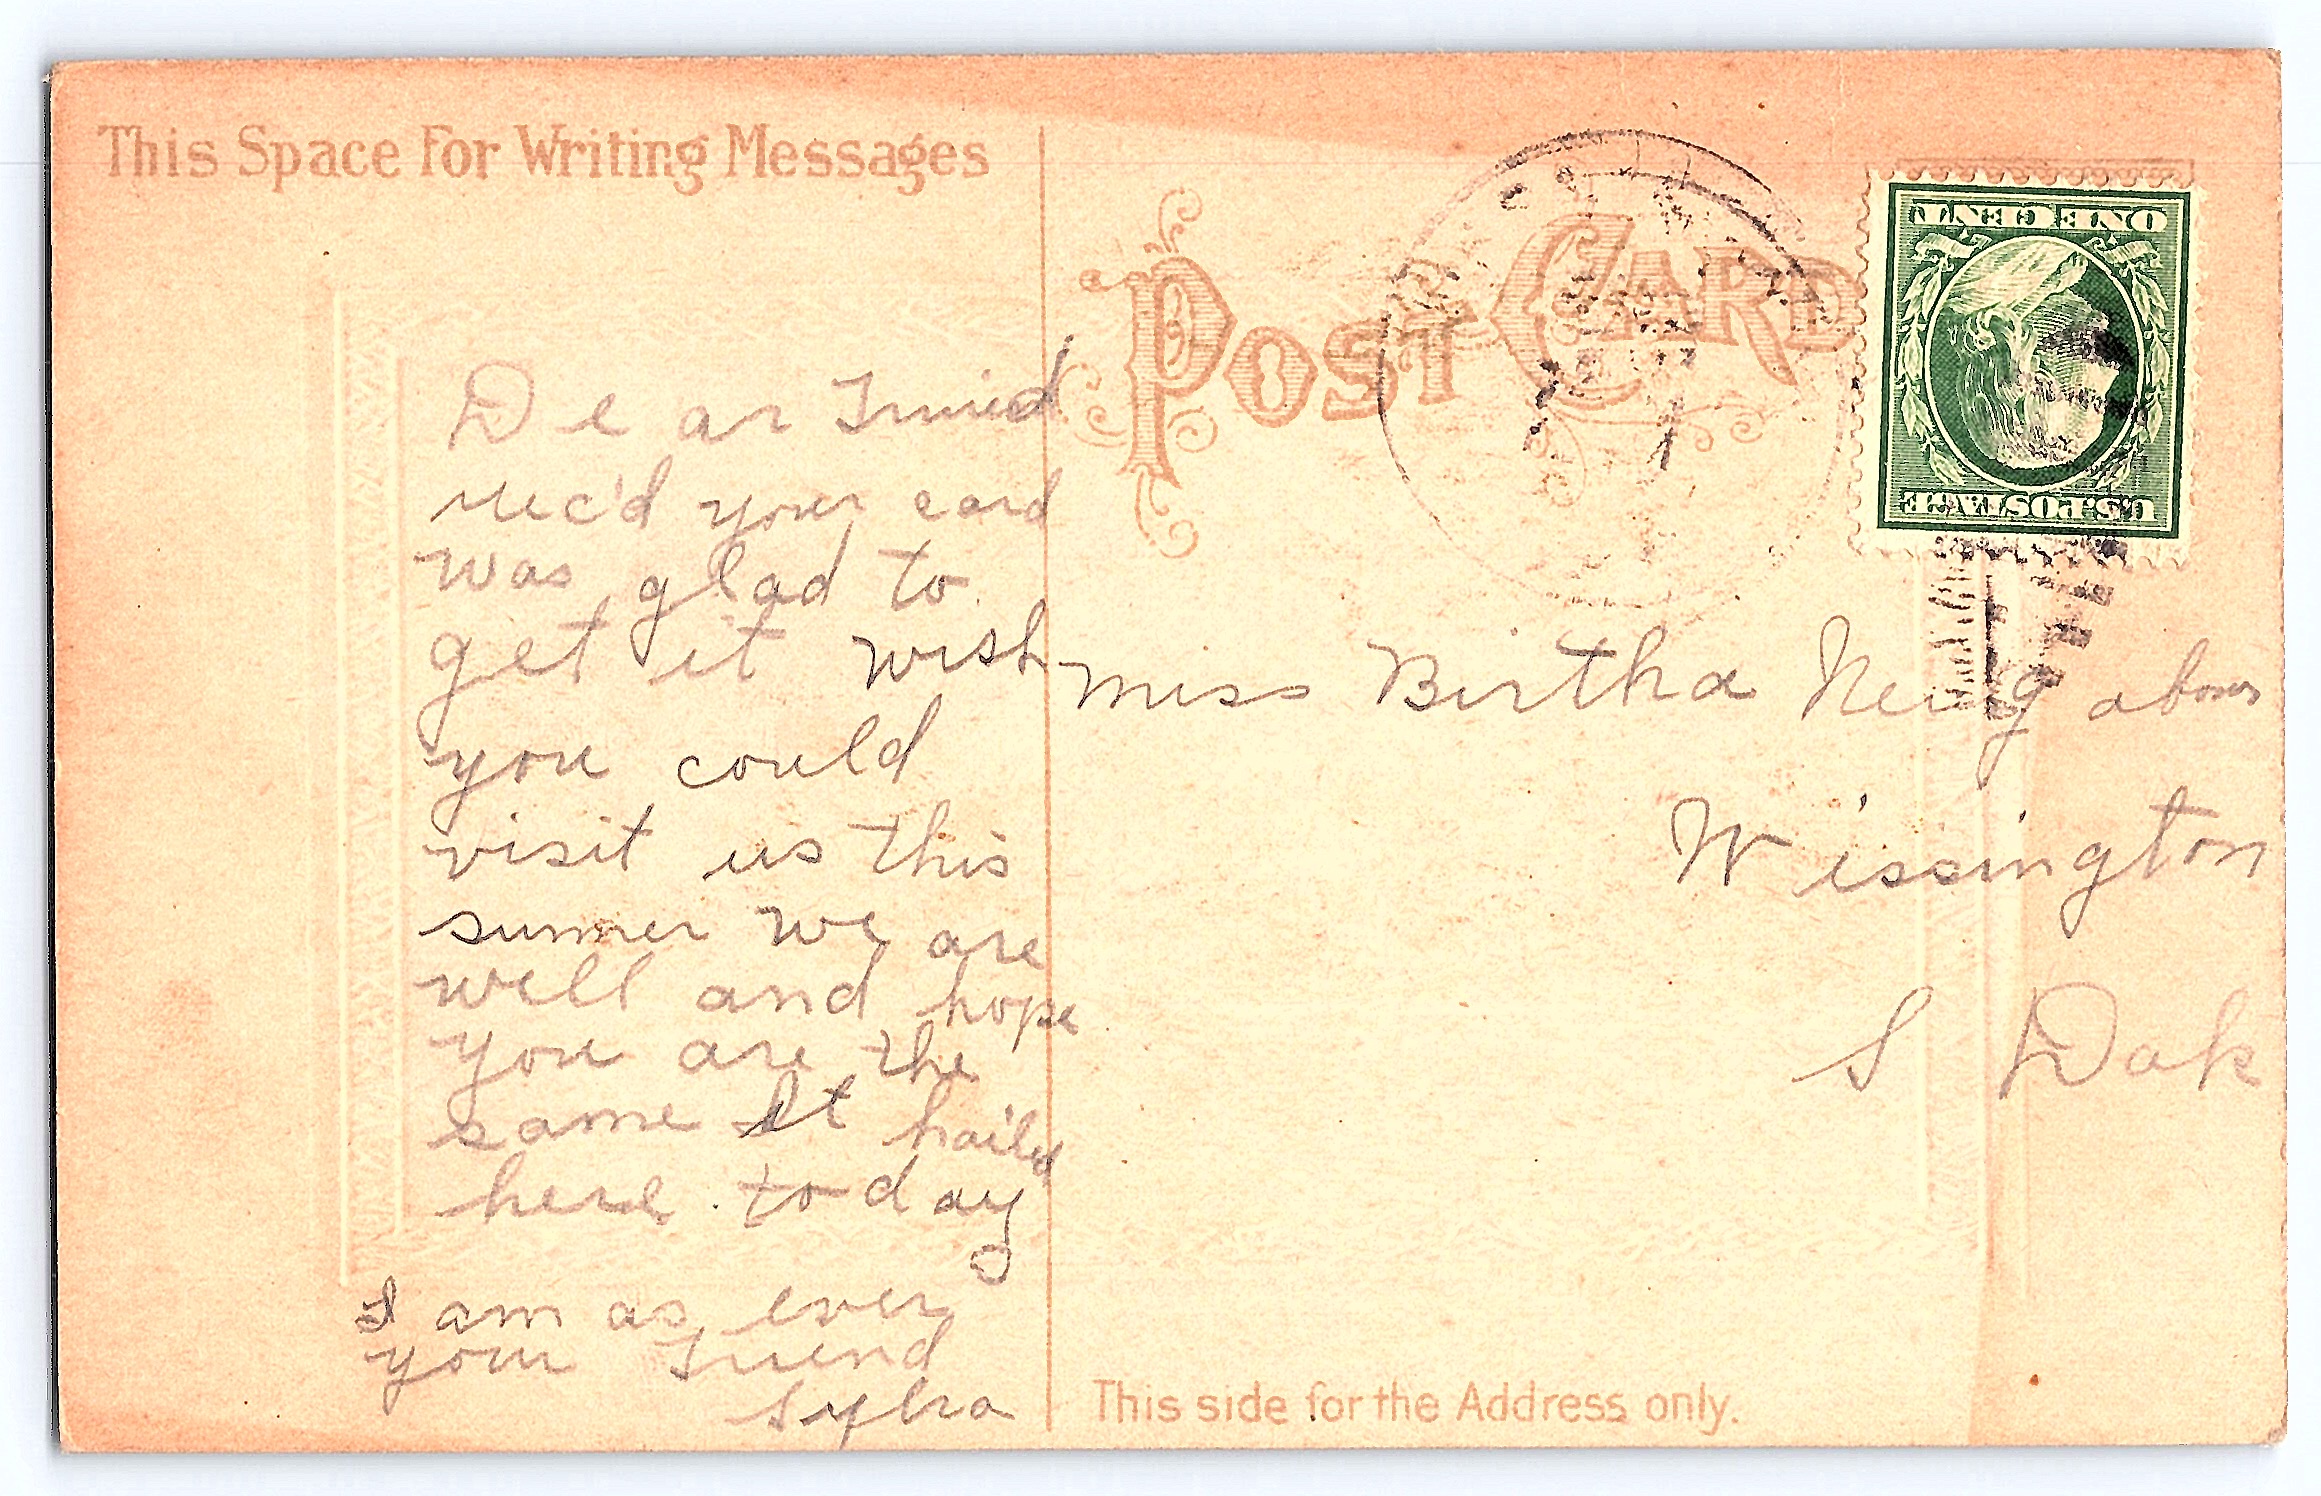 This Space For Writing Messages
Dear Friend
rec'd your card
was glad to
get it wish
you could
visit us this
sumer we are
well and hope
you are the
same It hailed
here today
I am as ever
your Friend
POST CARD
ONE CENT
U.S. POSTAGE
Miss Birtha
Wissington
S Dak
This side for the Address only.